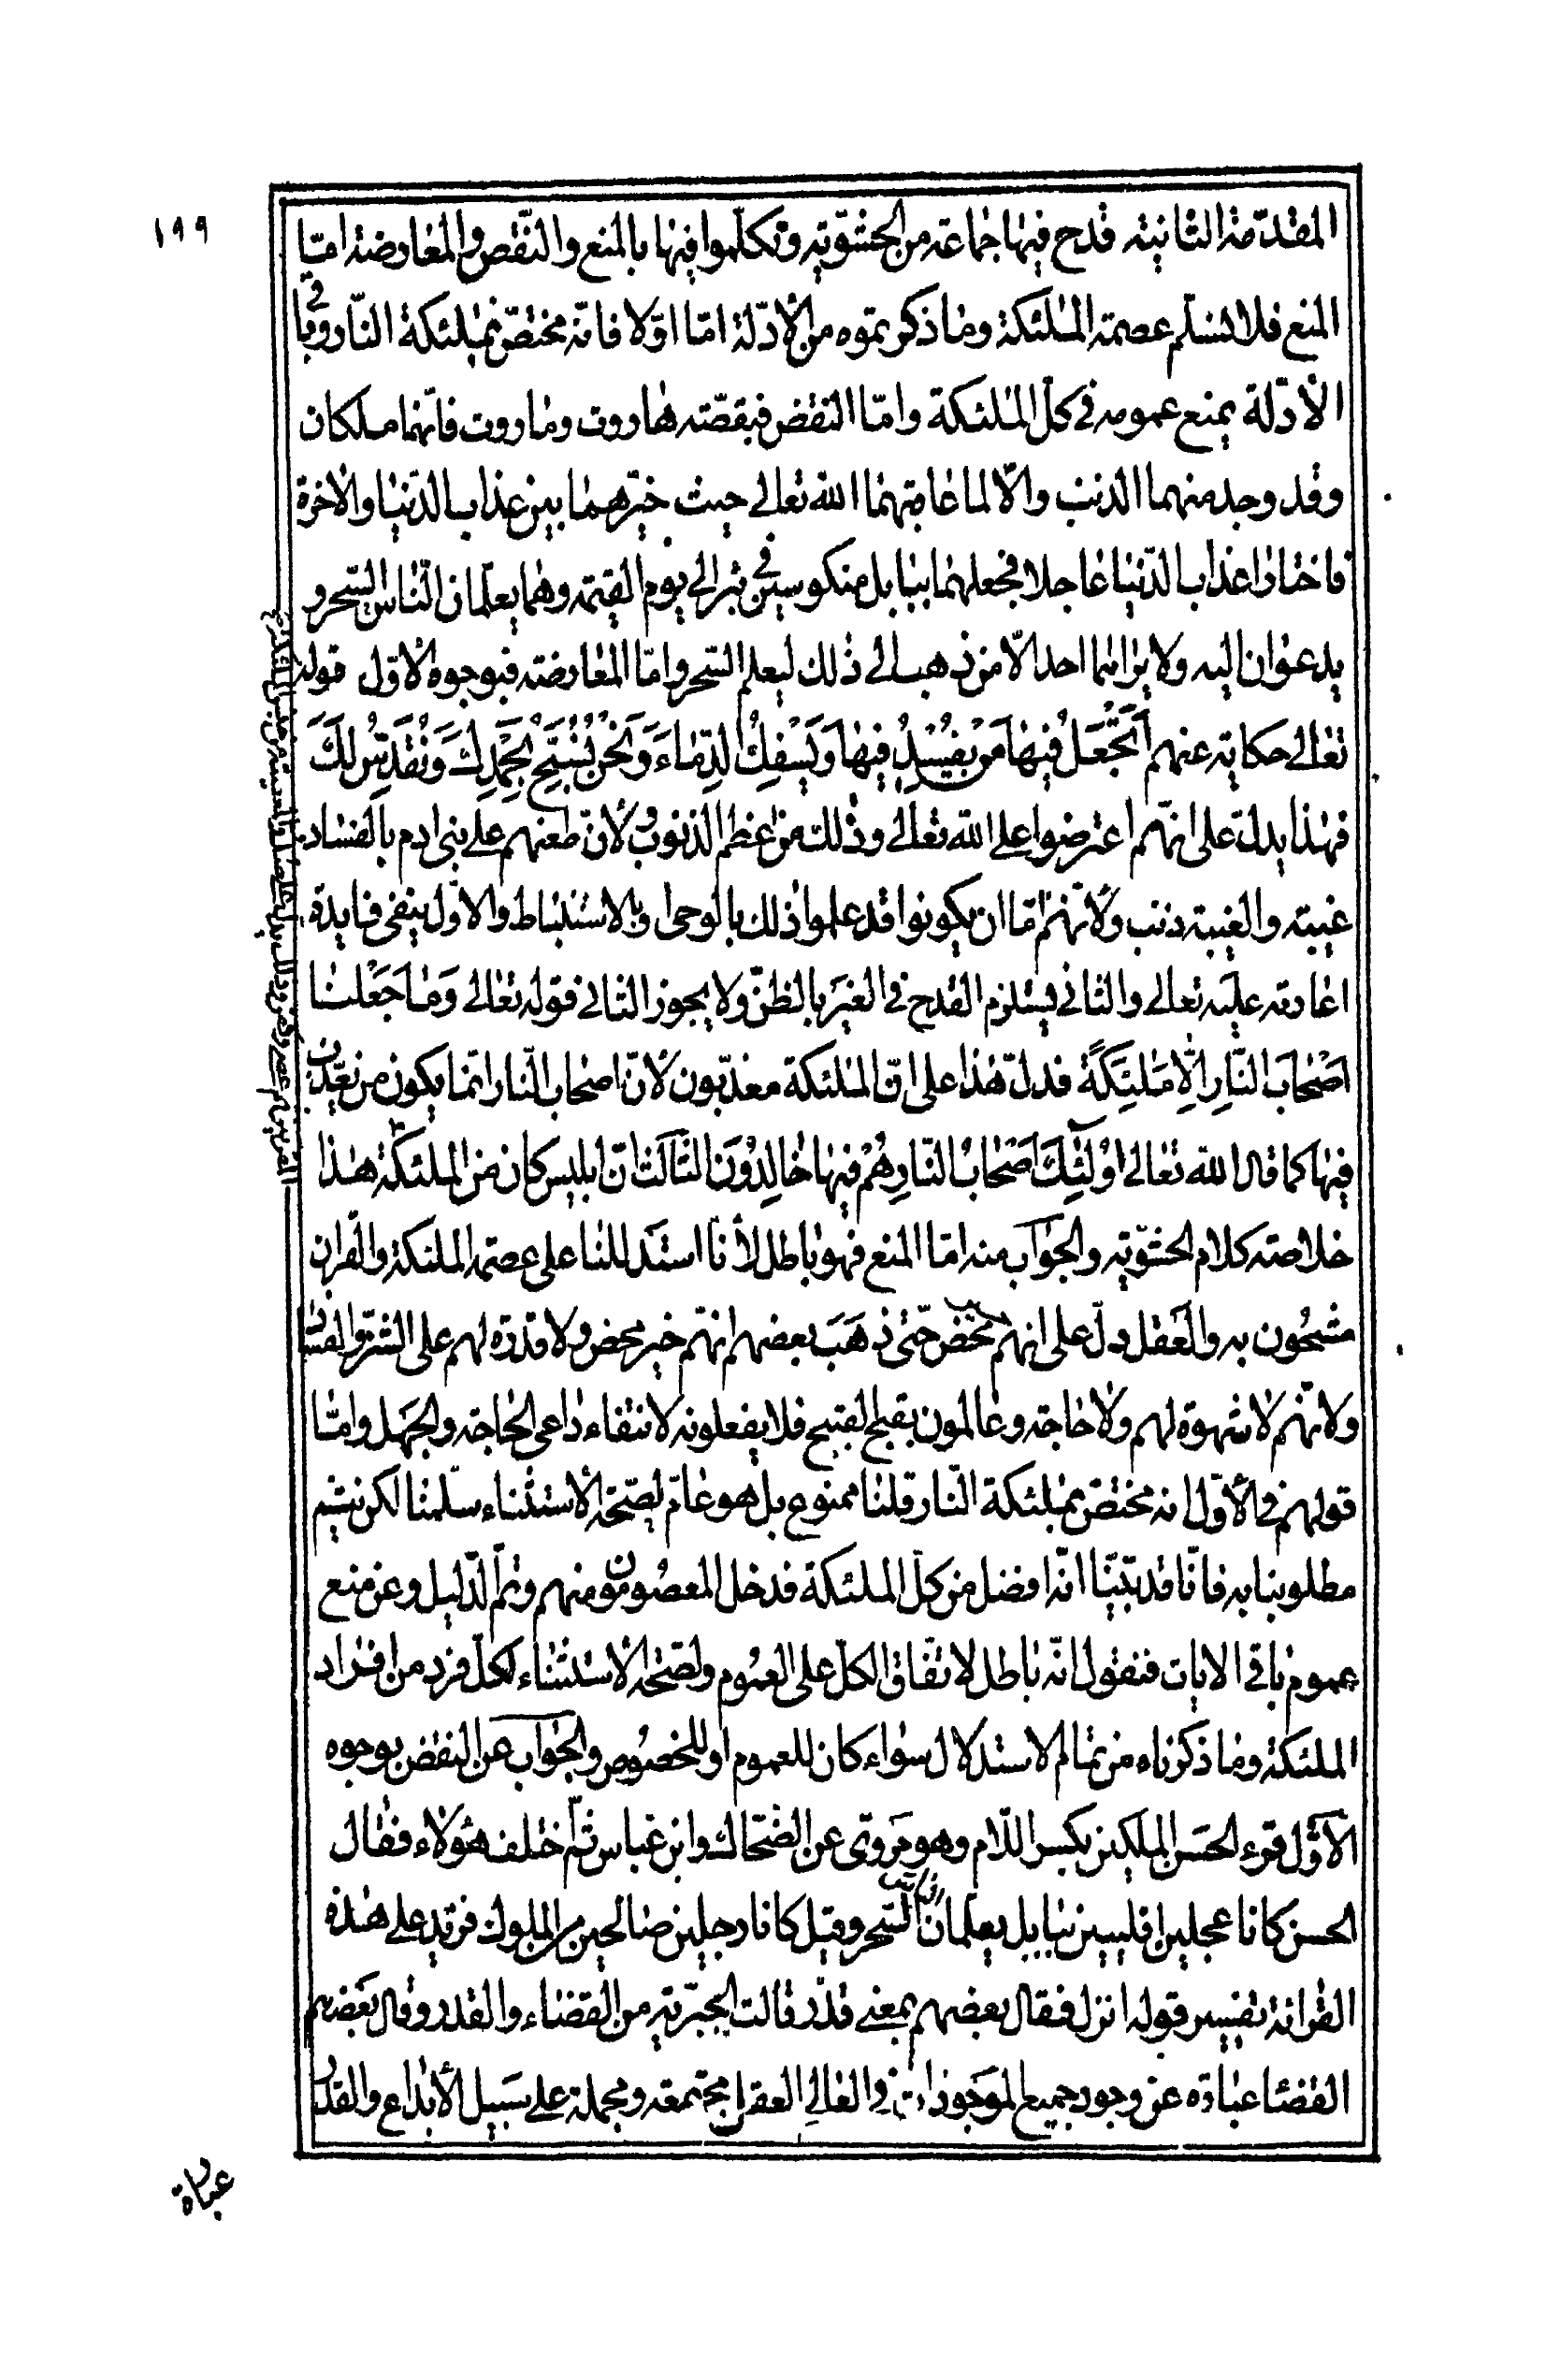 ١٩٩
المقدّمة الثانية قدح فيها جماعة من الحشويّة وتكلّموا فيها بالمنع والنّقض والمعارضة امّا
المنع فلا نسلّم عصمة الملئكة وما ذكرتموه من الأدّلة امّا اوّلا فانّه مختصّ بملئكة النّار وباقى
الأدّلة يمنع عمومه فى كلّ الملئكة وامّا النقض فبقصّة هاروت وماروت فانّهما ملكان
وقد وجد منهما الذنب والّا لما عاقبهما الله تعالى حيث خيّرهما بين عذاب الدّنيا والآخرة
فاختارا عذاب الدّنيا عاجلا فجعلهما ببابل منكوسين فى بئر الى يوم القيمة وهما يعلّمان النّاس السّحر و
يدعوان اليه ولا يراهما احد الّا من ذهب الى ذلك ليعلم السّحر وامّا المعارضة فبوجوه الاوّل قوله
تعالى حكاية عنهم أَتَجْعَلُ فِيهَا مَنْ يُفْسِدُ فِيهَا وَيَسْفِكُ الدِّمَاءَ وَنَحْنُ نُسَبِّحُ بِحَمْدِكَ وَنُقَدِّسُ لَكَ
فهذا يدلّ على انهّم اعترضوا على الله تعالى وذلك من اعظم الذنوب ولأنّ طعنهم على بنى ادم بالفساد
غيبة والغيبة ذنب ولأنّهم امّا ان يكونوا قد علموا ذلك بالوحى او بالاستنباط والاوّل ينفى فايدة
اعادته عليه تعالى والثانى يستلزم القدح فى الغير بالظنّ ولا يجوز الثانى قوله تعالى وَمَا جَعَلْنَا
اَصْحَابَ النَّارِ اِلَّا مَلَئِكَةً فدلّ هذا على انّ الملئكة معذّبون لأنّ اصحاب النّار انّما يكون من تعذّبن
فيها كما قال الله تعالى اُولَئِكَ اَصْحَابُ النَّارِ هُمْ فِيهَا خَالِدُونَ الثالث انّ ابليس كان من الملئكة هذا
خلاصة كلام الحشويّة والجواب منه امّا المنع فهو باطل لأنّا استدللنا على عصمة الملئكة والقران
مشحون به والعقل دلّ على انهم محض حتى ذهب بعضهم انهّم خير محض ولا قدرة لهم على الشرّ والفساد
ولانّهم لا شهوة لهم ولا حاجة وعالمون بقبح القبيح فلا يفعلونه لانتفاء داعى الحاجة والجهل وامّا
قولهم فى الأوّل انه مختصّ بملئكة النّار قلنا ممنوع بل هو عامّ لصّحة الأستثناء سلّمنا لكن نتيم
مطلوبنا به فانّا قد بيّنّا انّه افضل من كلّ الملئكة فدخل المعصومون منهم وتمّ الدّليل وعن منع
عموم باقى الايات فنقول انّه باطل لاتفّاق الكلّ على العموم ولصّحة الأستثناء لكلّ فرد من افراد
الملئكة وما ذكرناه من تمام الاستدلال سواء كان للعموم او للخصوص والجواب عن النقض بوجوه
الأوّل قرء الحسن الملكين بكسر اللّام وهو مروىّ عن الضّحاك وابن عباس ثمّ اختلف هؤلاء فقال
الحسن كانا عجلين اقليسين ببابل يعلّمان النّاس السّحر وقيل كانا رجلين صالحين من الملوك فرتيد على هذه
القرائة تفسير قوله انزل فقال بعضهم بمعنى قدّر قالت الجبّرية من القضاء والقدر وقال بعضهم
القضا عبارة عن وجود جميع الموجودات فى العالم العقلى مجتمعة ومجملة على سبيل الأبداع والقدر
عبارة